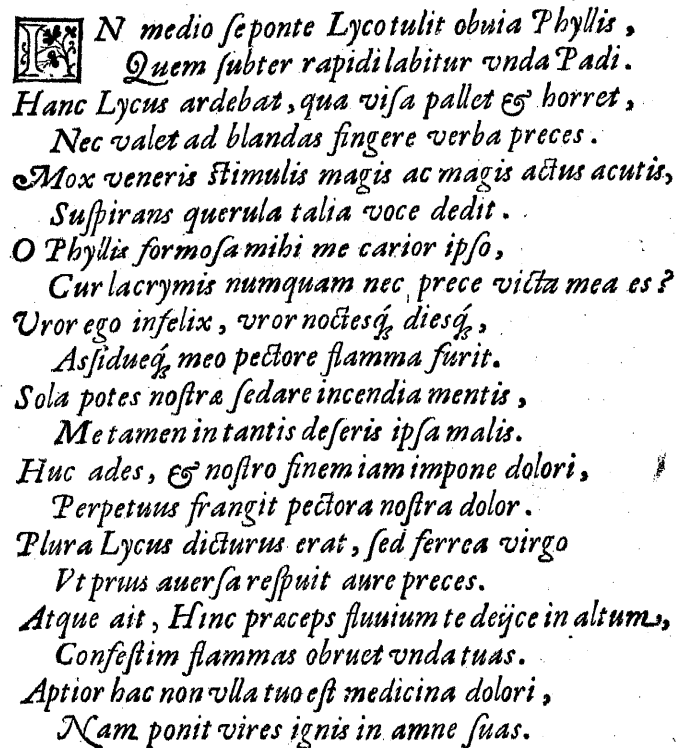 IN medio ſe ponte Lyco tulit obuia Phyllis,
Quem ſubter rapidi labitur vnda Padi.
Hanc Lycus ardebat, qua viſa pallet & horret,
Nec valet ad blandas fingere verba preces.
Mox veneris ſtimulis magis ac magis actus acutis,
Suſpirans querula talia voce dedit.
O Phyllis formoſa mihi me carior ipſo,
Cur lacrymis numquam nec prece victa mea es?
Vror ego infelix, vror noctesq́; diesq́;,
Aſſidueq́; meo pectore flamma furit.
Sola potes noſtræ ſedare incendia mentis,
Me tamen in tantis deſeris ipſa malis.
Huc ades, & noſtro finem iam impone dolori,
Perpetuus frangit pectora noſtra dolor.
Plura Lycus dicturus erat, ſed ferrea virgo
Vt prius auerſa reſpuit aure preces.
Atque ait, Hinc præceps fluuium te deijce in altum,
Confeſtim flammas obruet vnda tuas.
Aptior hac non vlla tuo eſt medicina dolori,
Nam ponit vires ignis in amne ſuas.